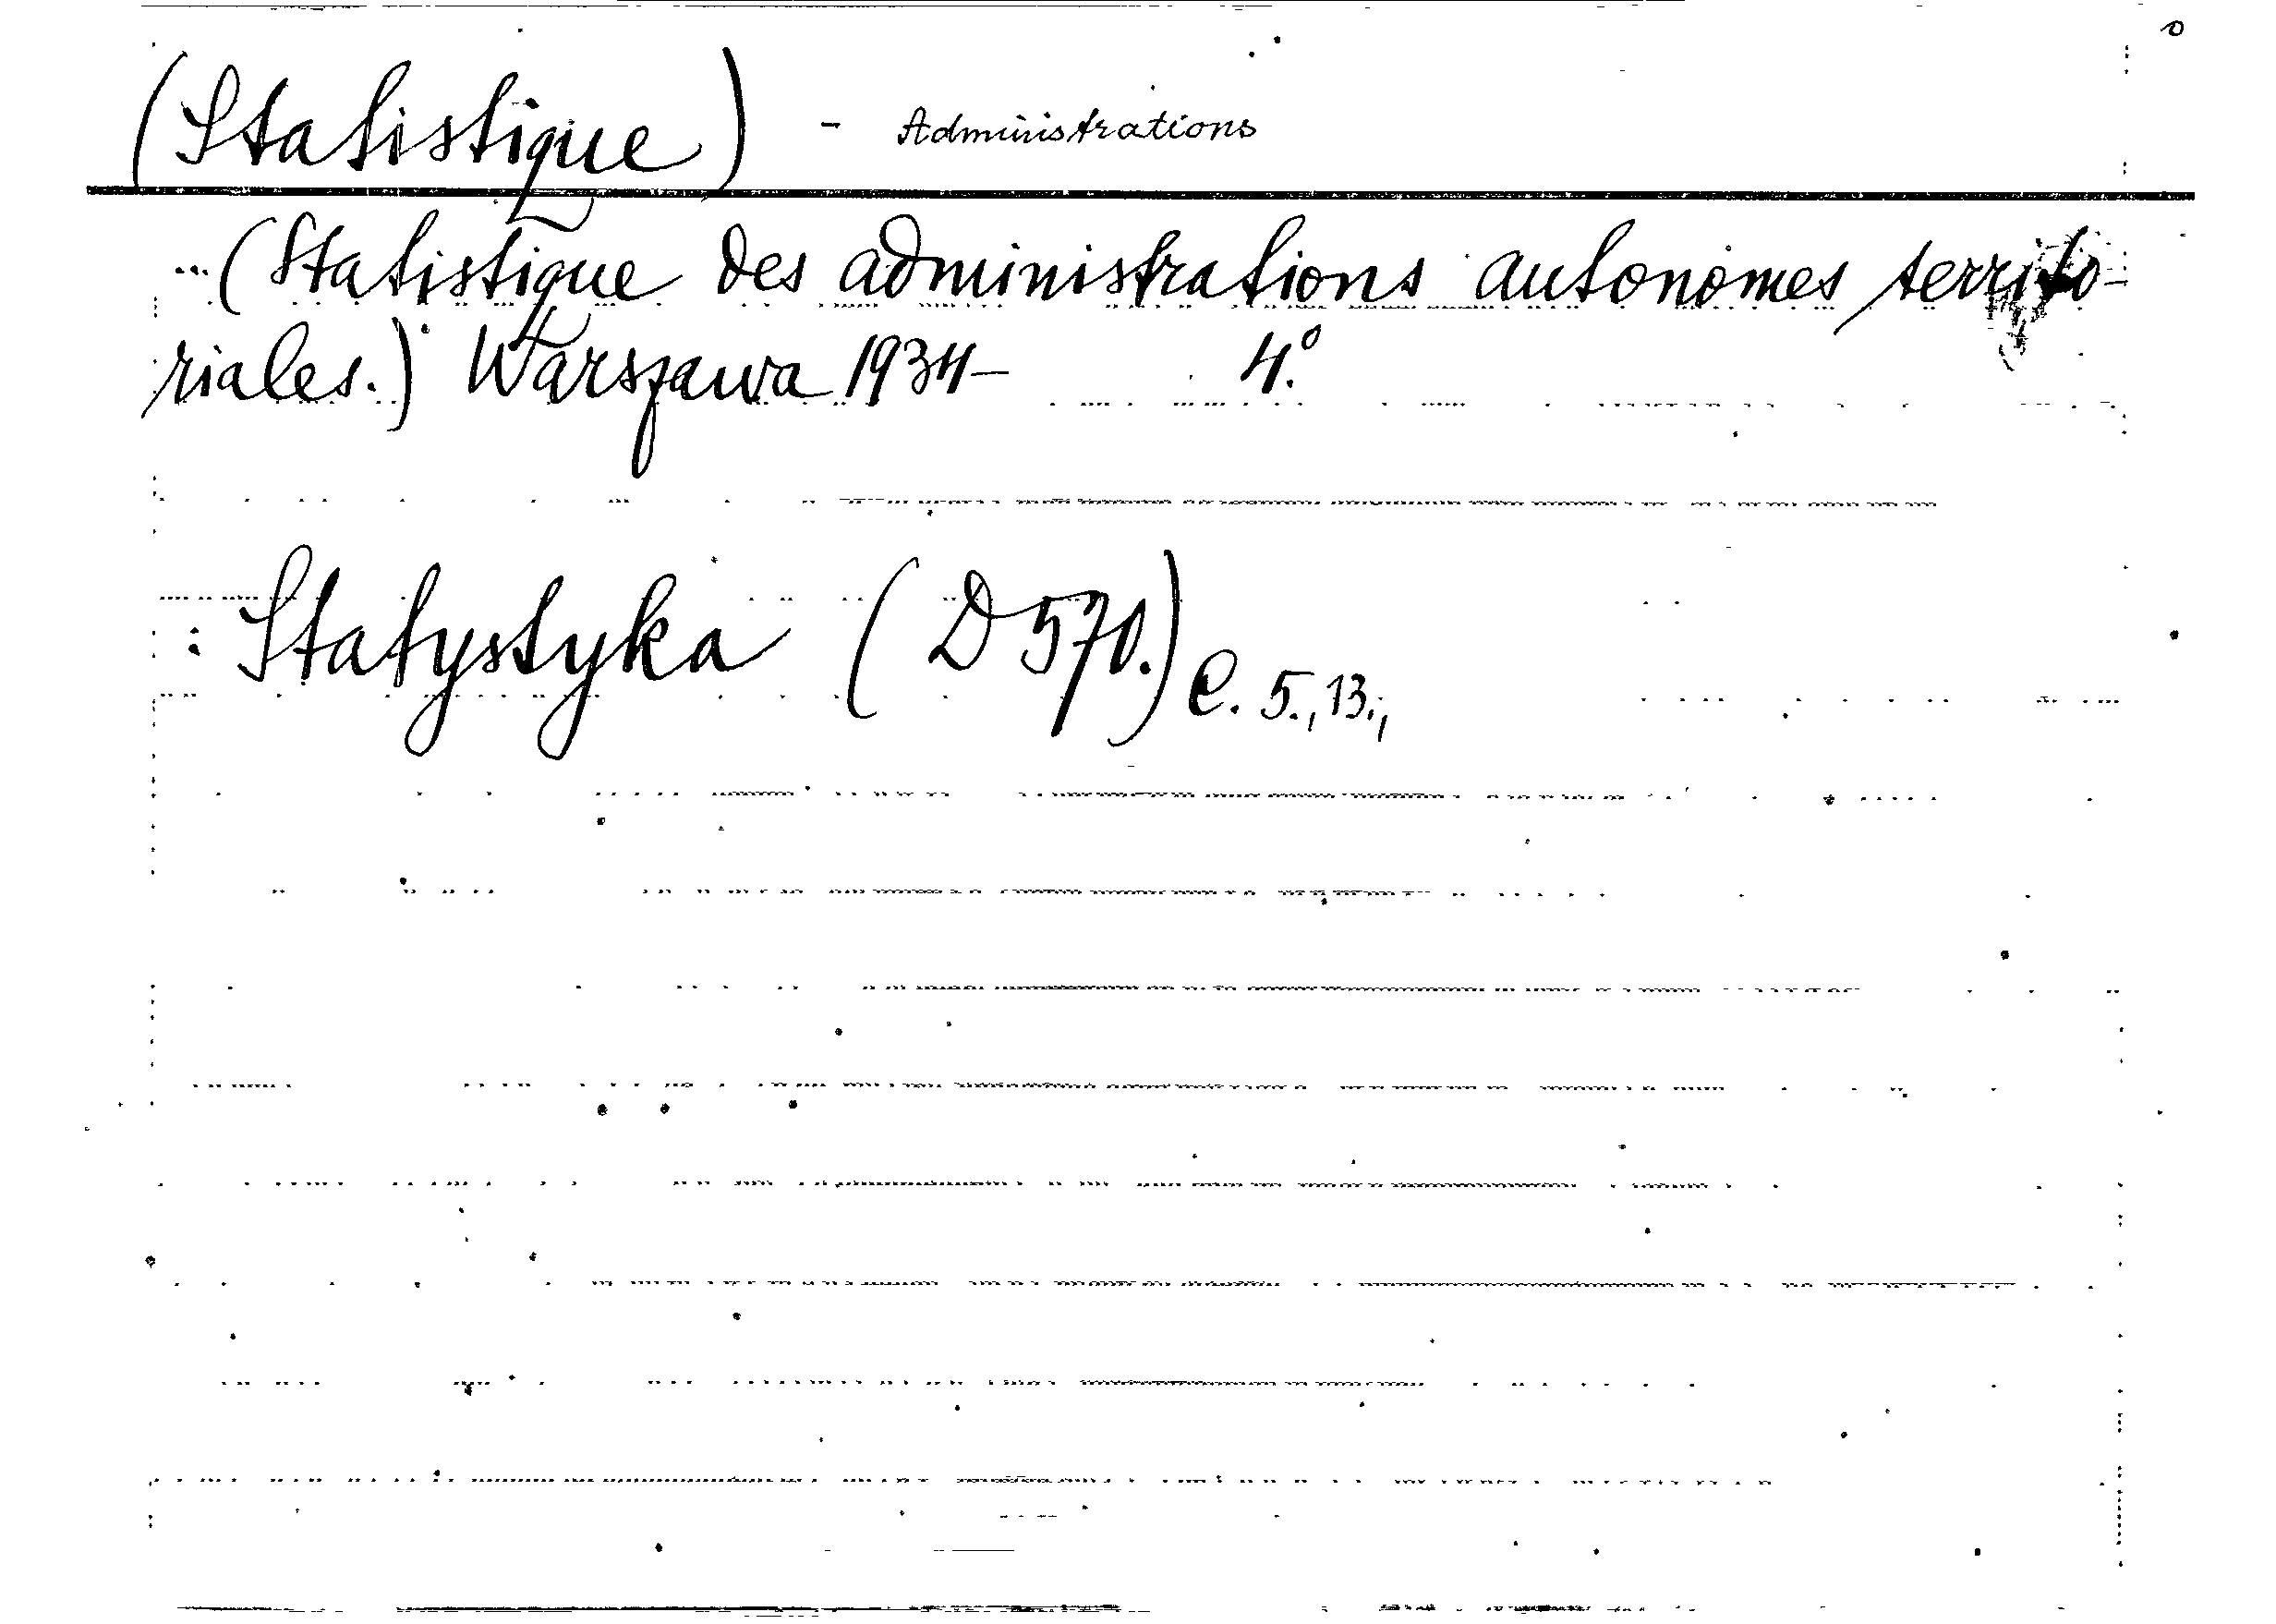 (Statistique) - Administrations
... (Statistique des administrations autonomes territo-
riales.) Warszawa 1934- 4.°
: Statystyka (D 570.) C. 5., 13.,